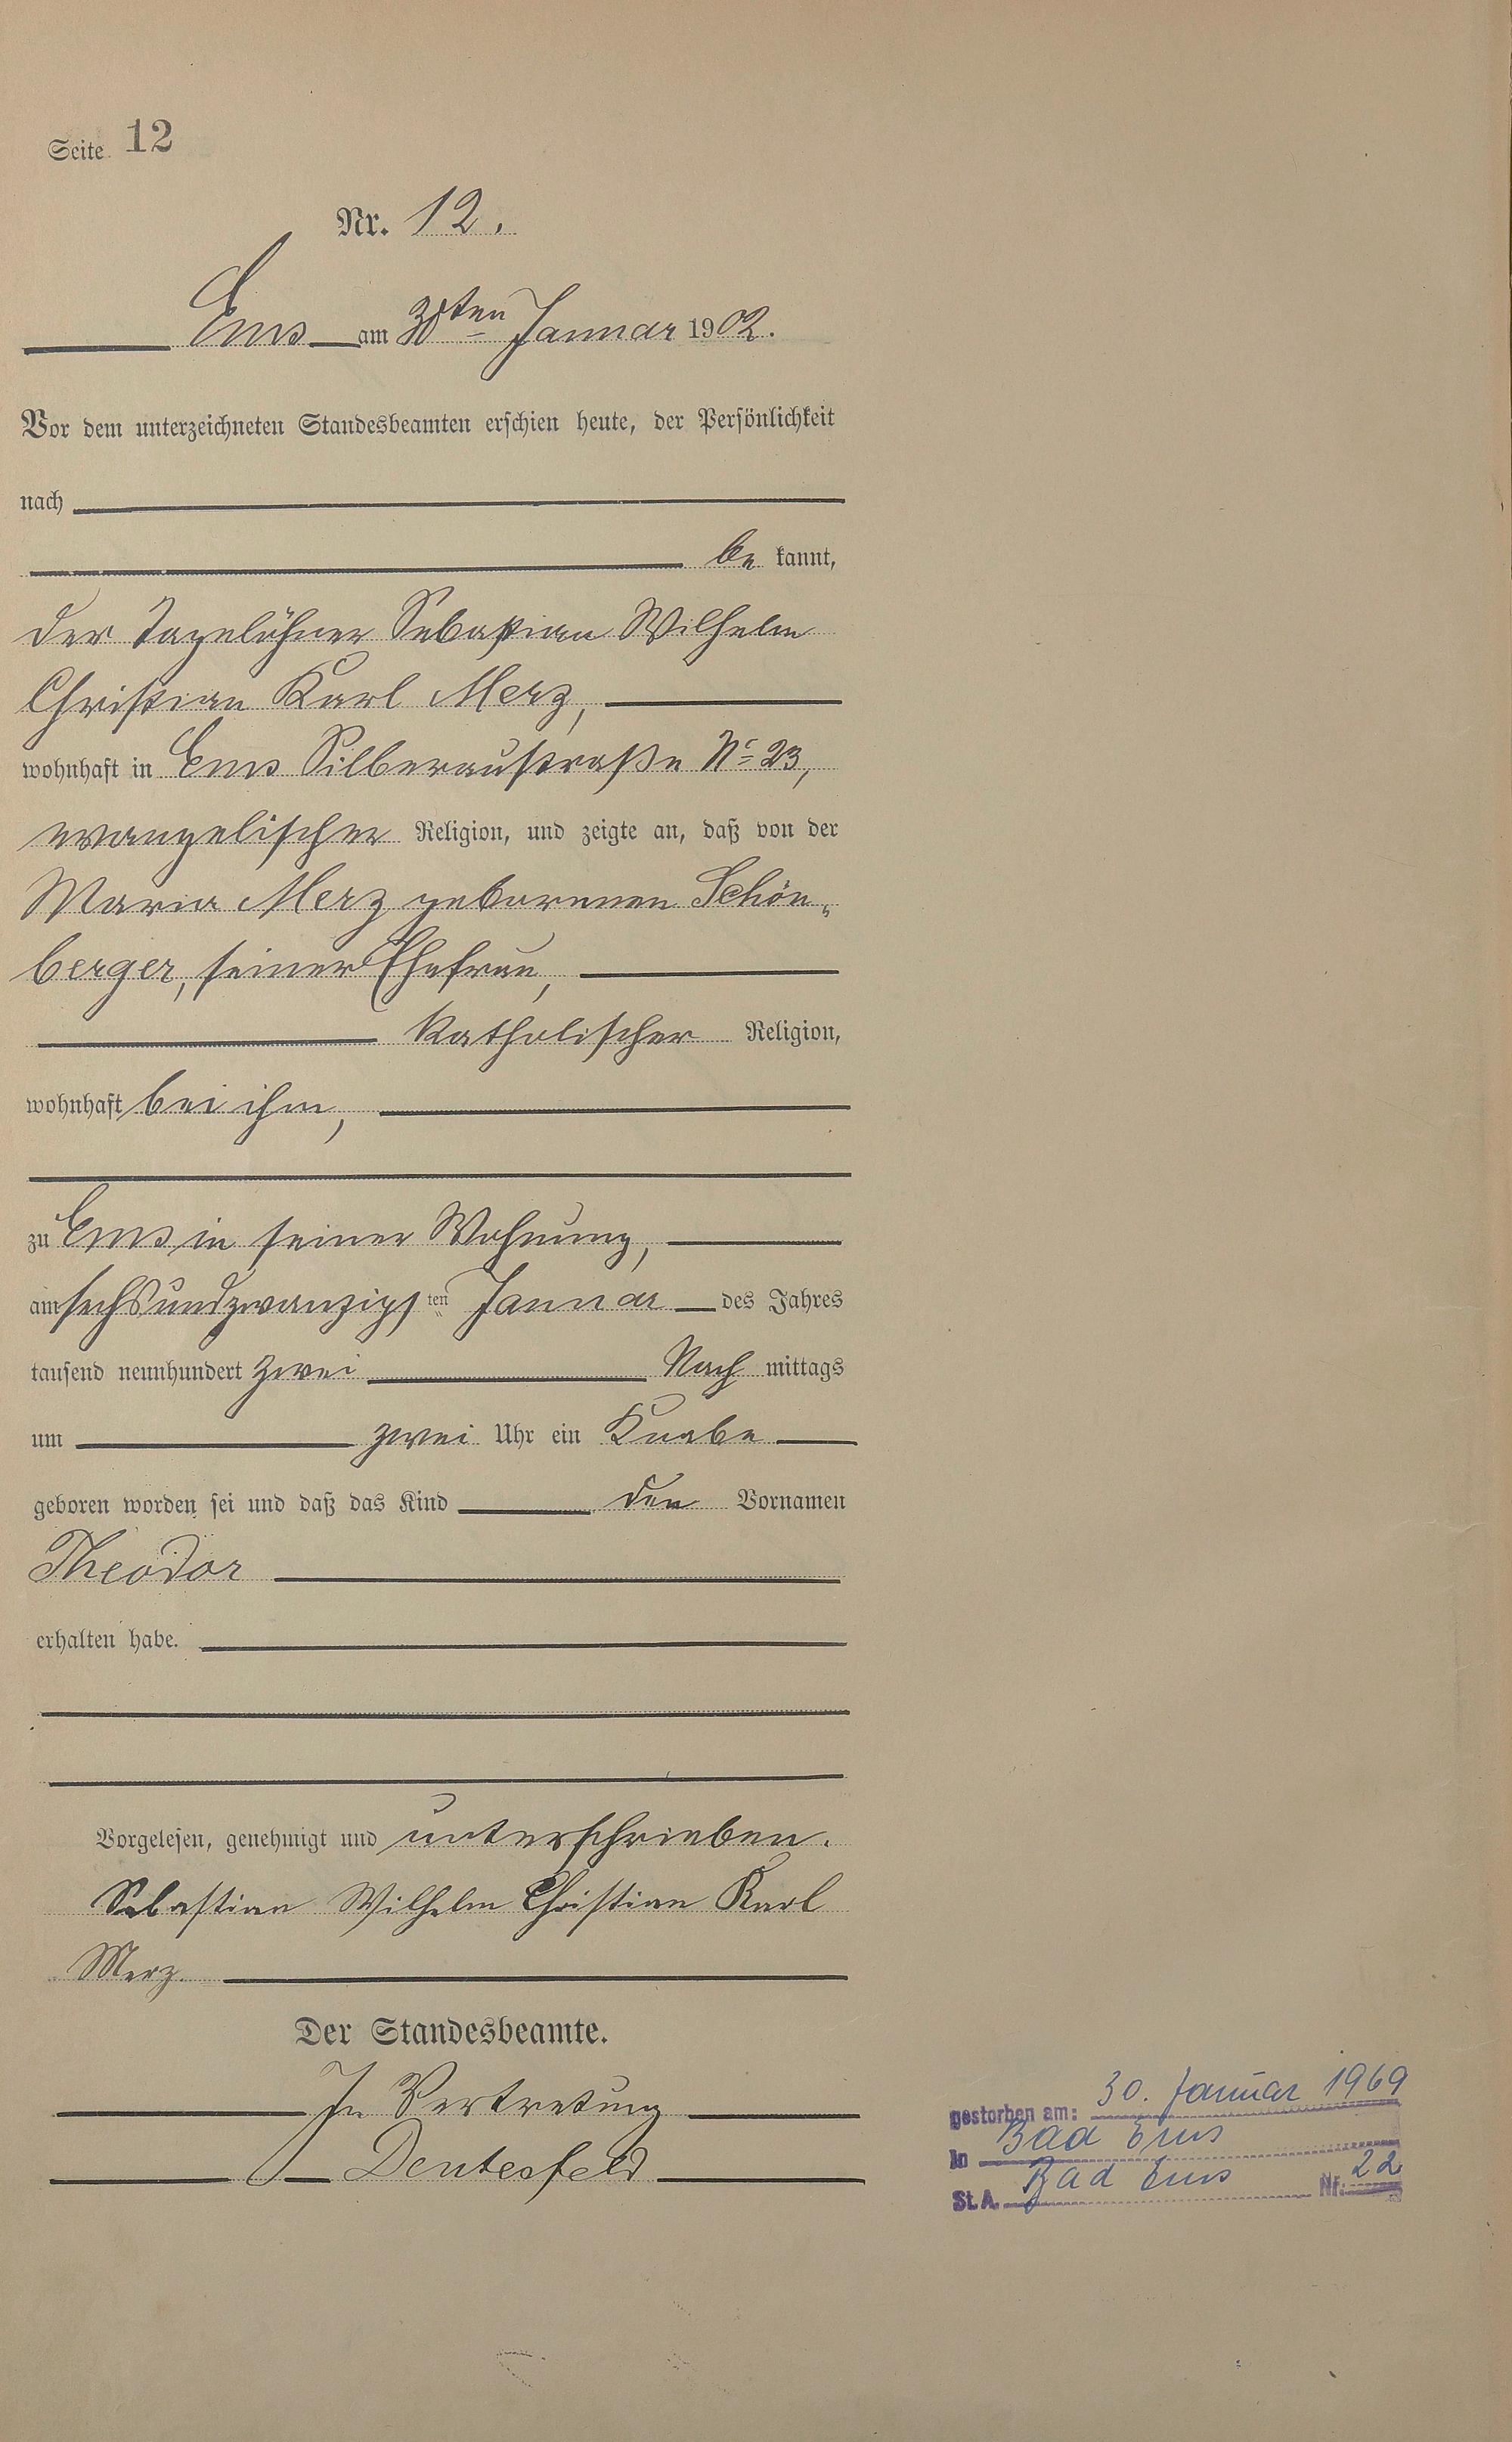 Seite 12
Nr. 12.
Ems am 30ten Januar 1902.
Vor dem unterzeichneten Standesbeamten erschien heute, der Persönlichkeit
nach
be kannt,
der Tagelöhner Sebastian Wilhelm
Christian Karl Merz,
wohnhaft in Ems Silberaustraße No 23,
evangelischer Religion, und zeigte an, daß von der
Maria Merz geborenen Schön-
berger, seiner Ehefrau,
katholischer Religion,
wohnhaft bei ihm,
zu Ems in seiner Wohnung,
am sechsundzwanzigsten Januar des Jahres
tausend neunhundert zwei Nach mittags
um zwei Uhr ein Knabe
geboren worden sei und daß das Kind den Vornamen
Theodor
erhalten habe.
Vorgelesen, genehmigt und unterschrieben.
Sebastian Wilhelm Christian Karl
Merz.
Der Standesbeamte.
In Vertretung
Deutesfeld
gestorben am: 30. Januar 1969
in Bad Ems
St.A. Bad Ems Nr. 22